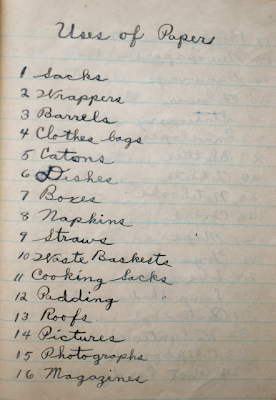 Uses of Paper
1 Sacks
2 Wrappers
3 Barrels
4 Clothes bags
5 Catons
6 Dishes
7 Boxes
8 Napkins
9 Straws
10 Waste Baskests
11 Cooking Sacks
12 Pudding
13 Roofs
14 Pictures
15 Photographs
16 Magazines